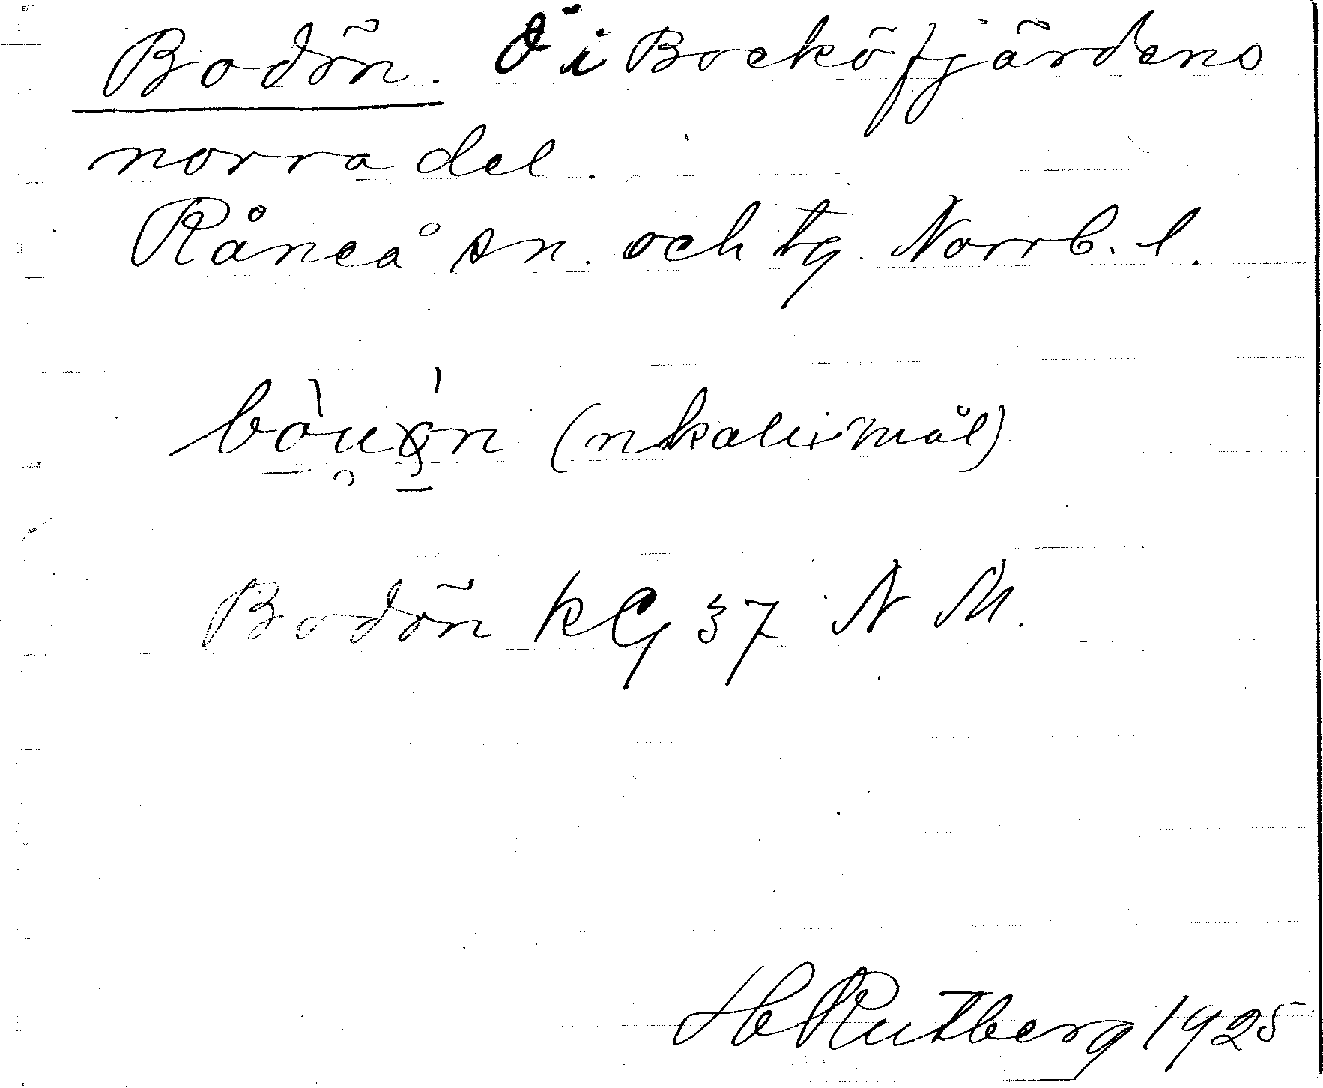 Bodön. Ö i Bocköfjärdens
norra del.
Råneå sn. och tg. Norrb. l.
(nkalixmål)
Bodön kG 37 N M.
H Rutberg 1925